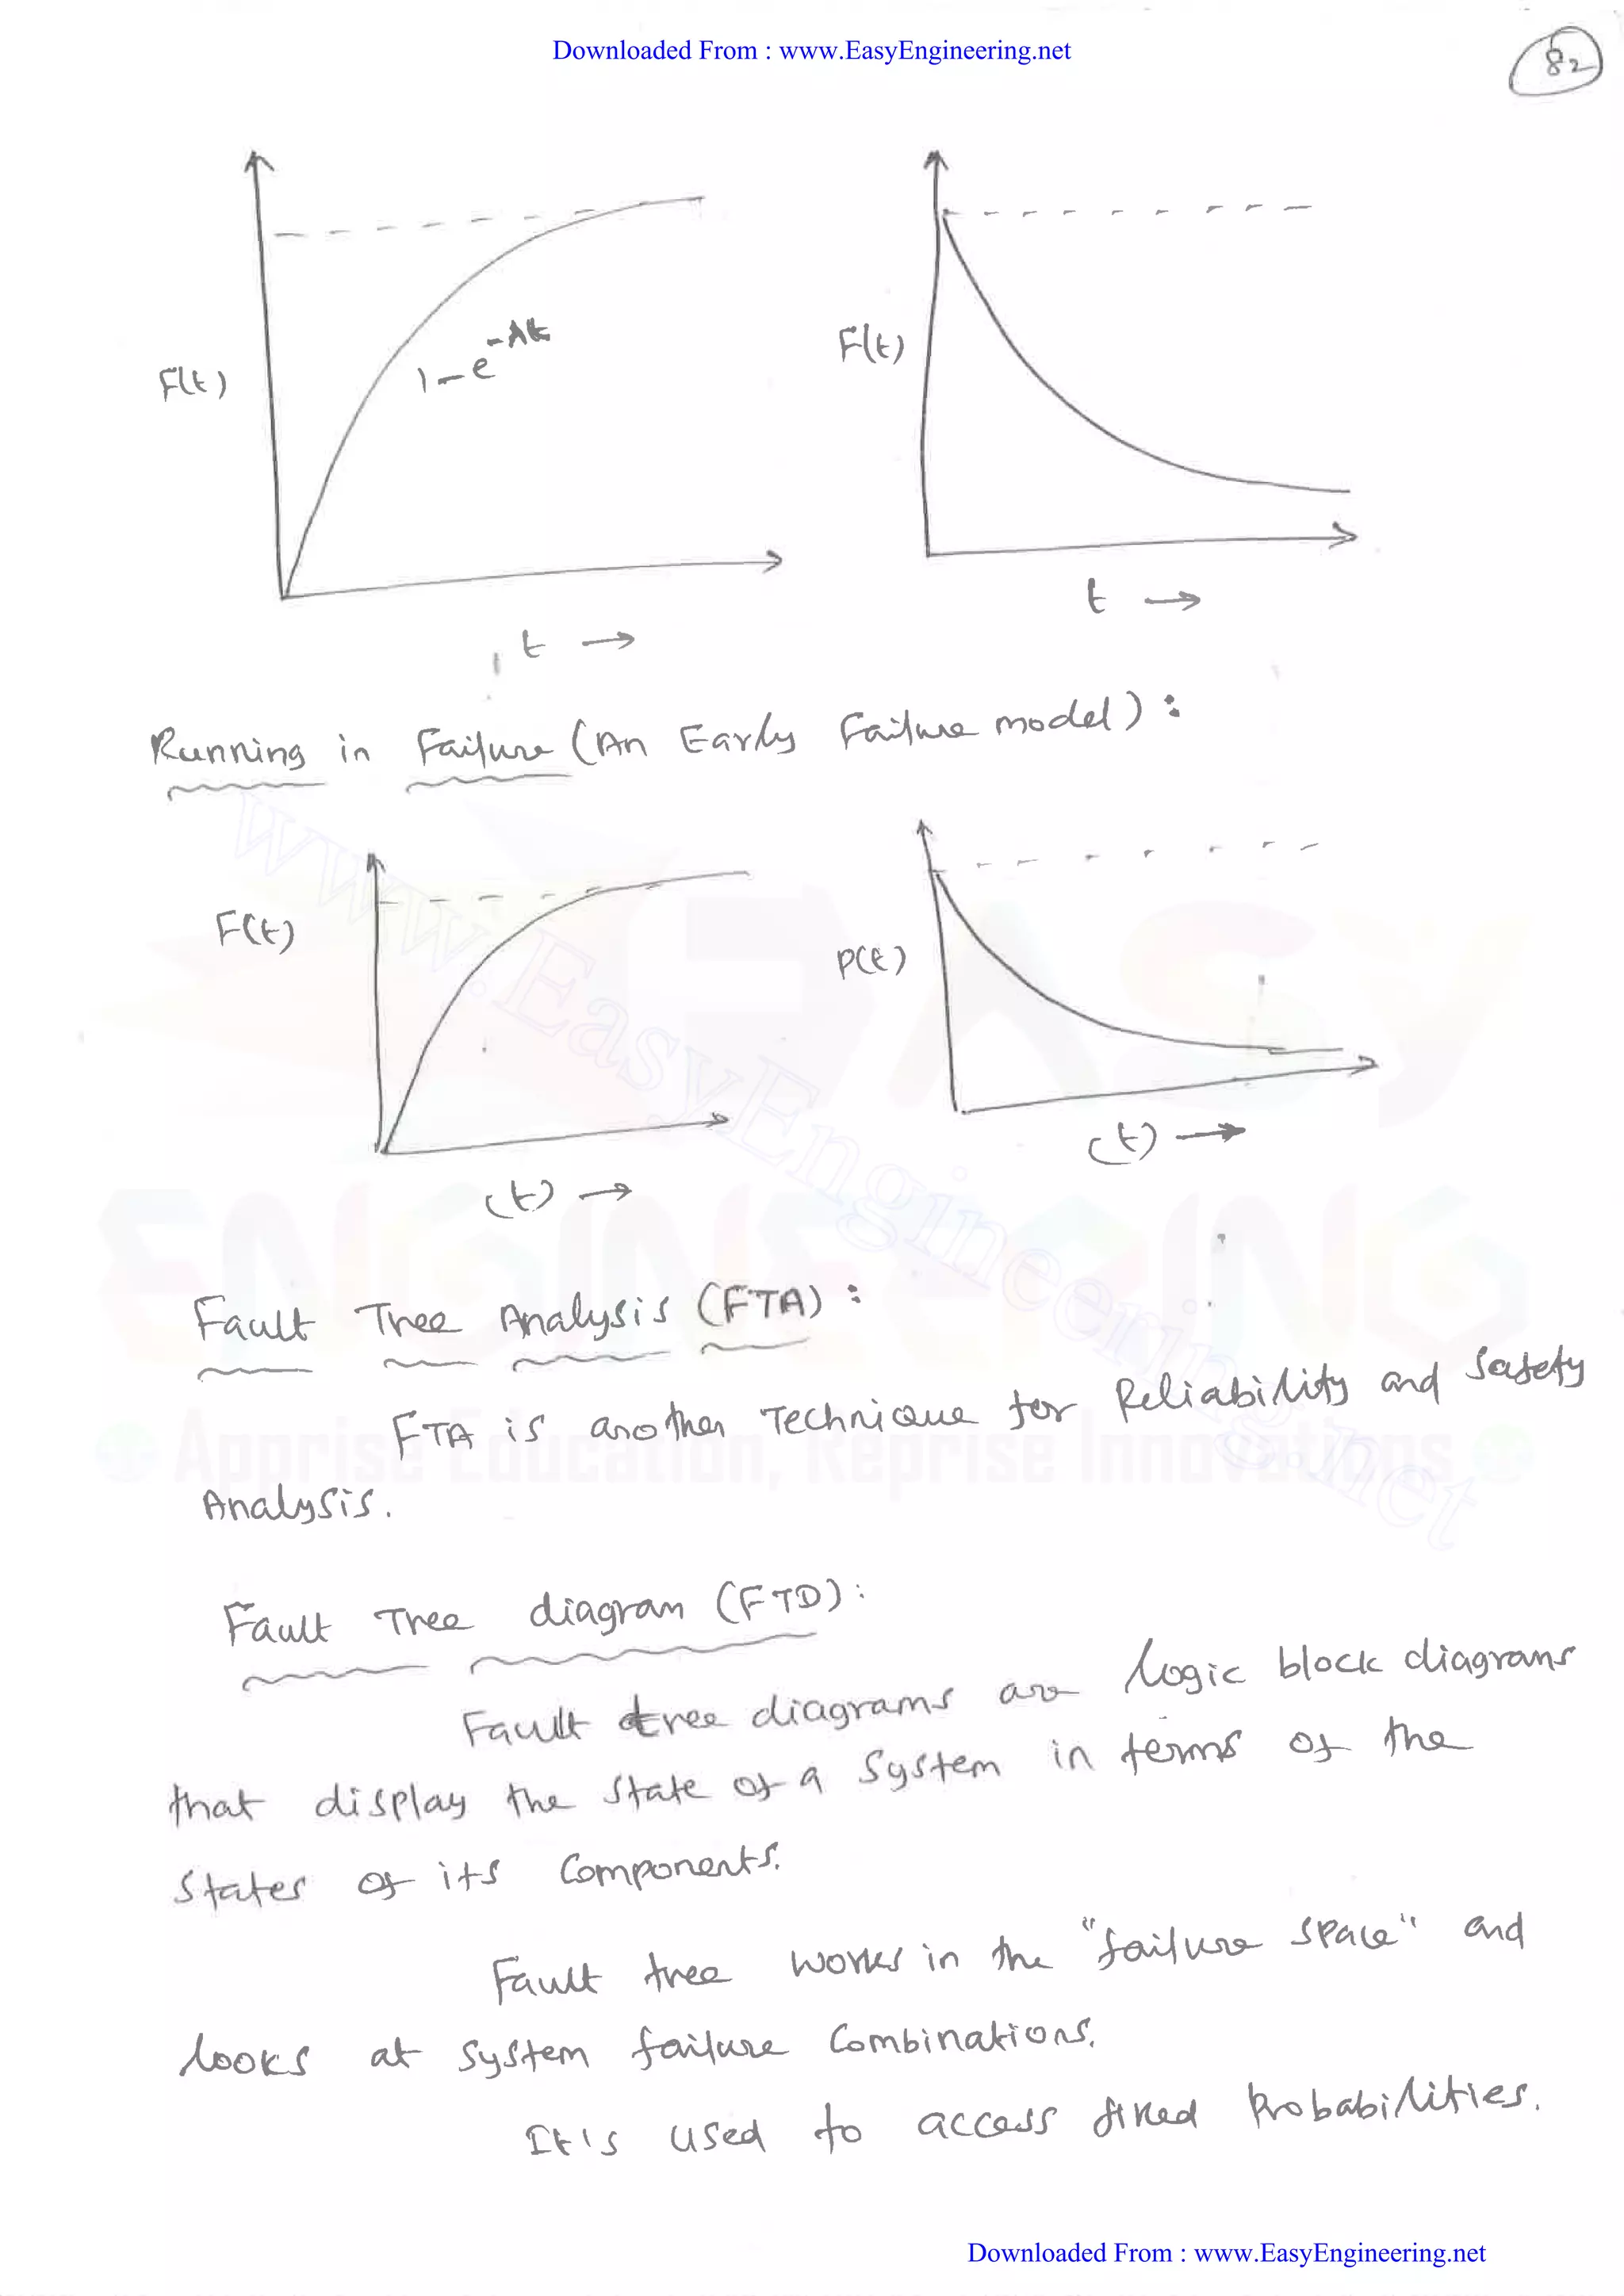 Downloaded From : www.EasyEngineering.net
82
F(t)
1-e^-λt
F(t)
t →
t →
Running in Failure (An Early Failure model) :
F(t)
P(t)
(t) →
(t) →
www.EasyEngineering.net
EASY
ENGINEERING
Apprise Education, Reprise Innovations
Fault Tree Analysis (FTA) :
FTA is another Technique for Reliability and Safety
Analysis.
Fault Tree diagram (FTD) :
Fault tree diagrams are logic block diagrams
that display the state of a System in terms of the
States of its Components.
Fault tree works in the "failure space" and
looks at System failure Combinations.
It's used to access fixed Probabilities.
Downloaded From : www.EasyEngineering.net